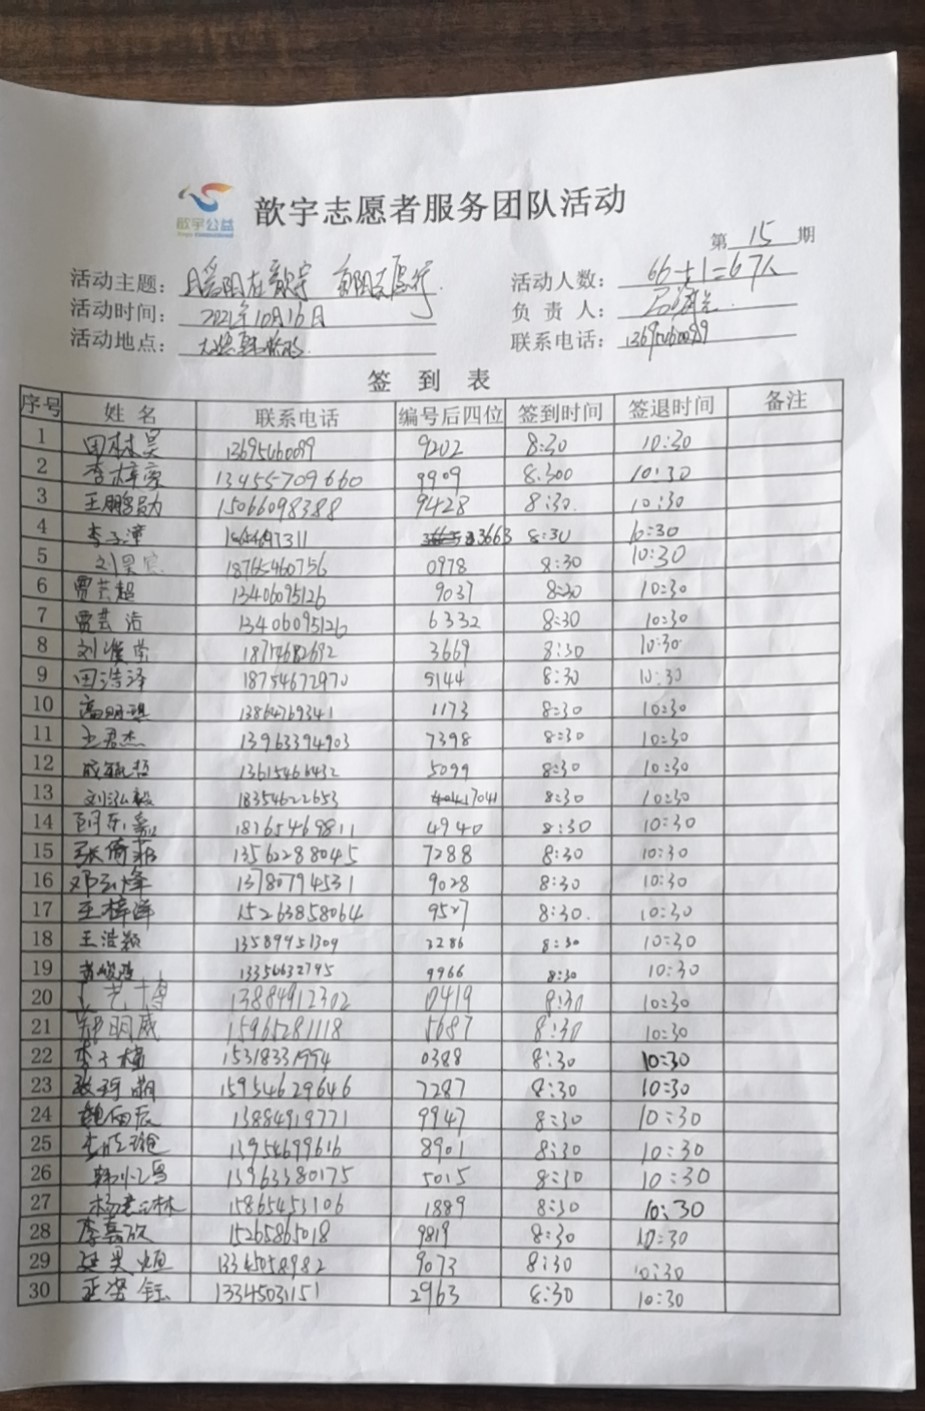 歆宇公益
歆宇志愿者服务团队活动
第 15 期
活动主题： 在歆宇
活动人数： 66+1=67人
活动时间： 2021年10月16日
负责人：
活动地点：
联系电话：
签到表
序号 姓名 联系电话 编号后四位 签到时间 签退时间 备注
1 田林昊 13695460099 9202 8:30 10:30
2 李梓豪 13455709660 9909 8:300 10:30
3 王鹏勋 15066098388 9428 8:30 10:30
4 李子潼 3663 8:30 10:30
5 刘昊宸 18765460756 0978 8:30 10:30
6 贾芸超 13406095126 9037 8:30 10:30
7 贾芸浩 13406095126 6332 8:30 10:30
8 3669 8:30 10:30
9 田浩泽 18754672970 9144 8:30 10:30
10 高明琪 13864769341 1173 8:30 10:30
11 王君杰 13963394903 7398 8:30 10:30
12 成毓哲 13615466432 5099 8:30 10:30
13 刘泓毅 18354622653 7041 8:30 10:30
14 18765469811 4940 8:30 10:30
15 张倚菲 13562288045 7288 8:30 10:30
16 邓 烽 13780794531 9028 8:30 10:30
17 王梓泽 15263858064 9527 8:30 10:30
18 王浩颖 13589951309 2286 8:30 10:30
19 13356632795 9966 8:30 10:30
20 艺博 13884912302 0419 8:30 10:30
21 郑明威 15965281118 5687 8:30 10:30
22 李子楠 15318331994 0388 8:30 10:30
23 15954629646 7287 8:30 10:30
24 13884919771 9947 8:30 10:30
25 13954699616 8901 8:30 10:30
26 13963380175 5015 8:30 10:30
27 15865453106 1889 8:30 10:30
28 李嘉欣 15265865018 9819 8:30 10:30
29 13345058982 9073 8:30 10:30
30 13345031151 2963 8:30 10:30